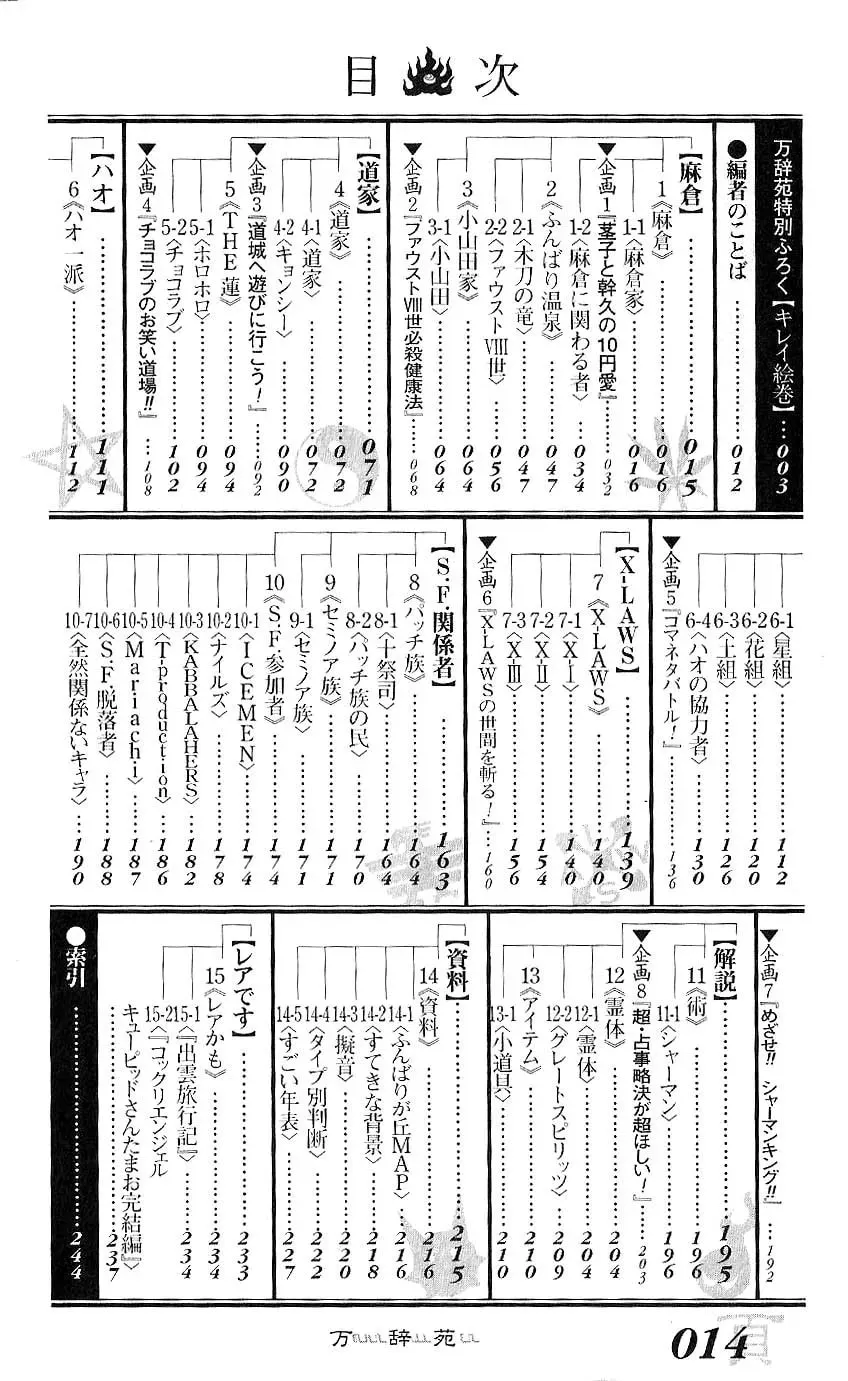 目次
万辞苑特別ふろく【キレイ絵巻】…003
●編者のことば………012
【麻倉】………015
1《麻倉》………016
1-1〈麻倉家〉………016
1-2〈麻倉に関わる者〉………034
▼企画1『茎子と幹久の10円愛』…032
2《ふんばり温泉》………047
2-1〈木刀の竜〉………047
2-2〈ファウストVIII世〉………056
3《小山田家》………064
3-1〈小山田〉………064
▼企画2『ファウストVIII世必殺健康法』…068
【道家】………071
4《道家》………072
4-1〈道家〉………072
4-2〈キョンシー〉………090
▼企画3『道城へ遊びに行こう!』…092
5《THE蓮》………094
5-1〈ホロホロ〉………094
5-2〈チョコラブ〉………102
▼企画4『チョコラブのお笑い道場!!』…108
【ハオ】………111
6《ハオ一派》………112
6-1〈星組〉………112
6-2〈花組〉………120
6-3〈土組〉………126
6-4〈ハオの協力者〉………130
▼企画5『コマネタバトル!』…136
【X-LAWS】………139
7《X-LAWS》………140
7-1〈X-I〉………140
7-2〈X-II〉………154
7-3〈X-III〉………156
▼企画6『X-LAWSの世間を斬る!』…160
【S.F.関係者】………163
8《パッチ族》………164
8-1〈十祭司〉………164
8-2〈パッチ族の民〉………170
9《セミノア族》………171
9-1〈セミノア族〉………171
10《S.F.参加者》………174
10-1〈ICEMEN〉………174
10-2〈ナイルズ〉………178
10-3〈KABBALAHERS〉…182
10-4〈T-production〉…186
10-5〈Mariachi〉………187
10-6〈S.F.脱落者〉………188
10-7〈全然関係ないキャラ〉…190
▼企画7『めざせ!! シャーマンキング!!』…192
【解説】………195
11《術》………196
11-1〈シャーマン〉………196
▼企画8『超・占事略決が超ほしい!』…203
12《霊体》………204
12-1〈霊体〉………204
12-2〈グレートスピリッツ〉………209
13《アイテム》………210
13-1〈小道具〉………210
【資料】………215
14《資料》………216
14-1〈ふんばりが丘MAP〉………216
14-2〈すてきな背景〉………218
14-3〈擬音〉………220
14-4〈タイプ別判断〉………222
14-5〈すごい年表〉………227
【レアです】………233
15《レアかも》………234
15-1〈『出雲旅行記』〉………234
15-2〈『コックリエンジェル
キューピッドさんたまお完結編』〉………237
●索引………244
万辞苑
014
頁